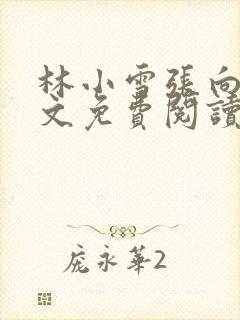 林小雪張向
文免費閱讀
龐永華2